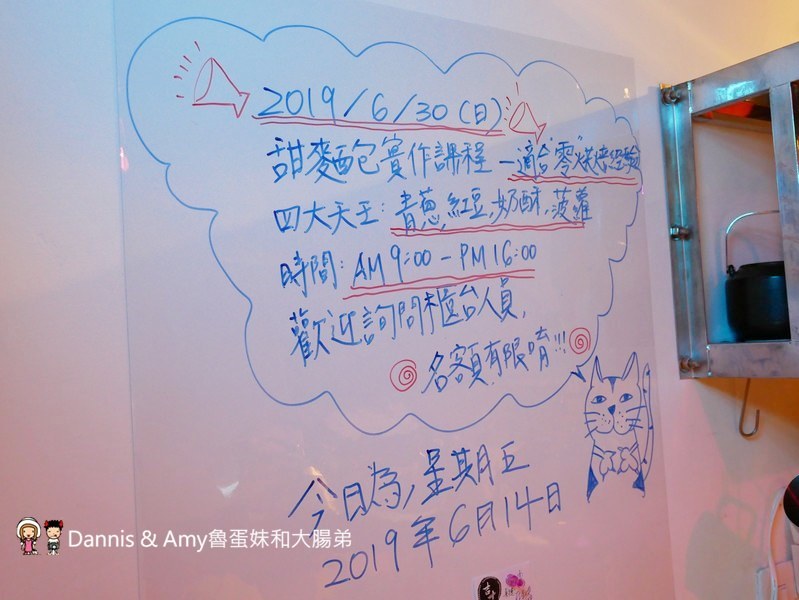 2019/6/30(日)
甜麵包實作課程－適合"零"烘焙經驗
四大天王:青蔥,紅豆,奶酥,菠蘿
時間:AM 9:00 - PM 16:00
歡迎詢問櫃台人員,
名額有限唷!!!
今日為,星期五
2019年6月14日
Dannis & Amy魯蛋妹和大腸弟